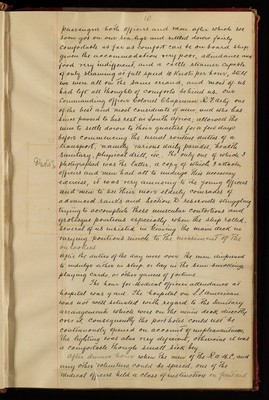 10
passengers both officers and men after which we
soon got on our sea legs and settled down fairly
comfortable as far as comfort can be on board ship
given the accommodation very poor, abundance and
food very indifferent and a cattle steamer capable
of only steaming at full speed 10 knots per hour, still
we were all on the same errand, and most of us
had left all thoughts of comforts behind us. Our
Commanding Officer Colonel Chapman
one
of the best and most considerate of men, and who has
since passed to his rest in South Africa, allowed the
men to settle down to their quarters for a few days
before commencing the usual routine duties of a
transport, namely various daily parades, health
sanitary, physical drill, etc. The only one of which I
Photo 3
photographed was the latter, a copy of which I obtain,
officers and men had all to undergo this necessary
exercise, it was very amusing to the young officers
and men to see their more elderly comrades of
advanced and Section D. reservists struggling
trying to accomplish these muscular contortions and
grotesque positions especially when the ship rolled,
several of us in leaving the main deck in
varying positions much to the amusement of the
on lookers
After the duties of the day were over the men disposed
to indulge either in sleep or lay in the sun smoking
playing cards or other games of fortune.
The hour for Medical Officers attendance at
hospital was 9 and The hospital on
was not well situated with regard to the Sanitary
arrangements which were on the wind deck directly
over it, consequently the port holes could not be
continuously opened on account of unpleasantness.
The lighting was also very deficient, otherwise it was
a comfortable though small sick bay.
After dinner hour when the men of the R.A.M.C. and
any other volunteers could be spared, one of the
Medical Officers held a class of instruction on first aid